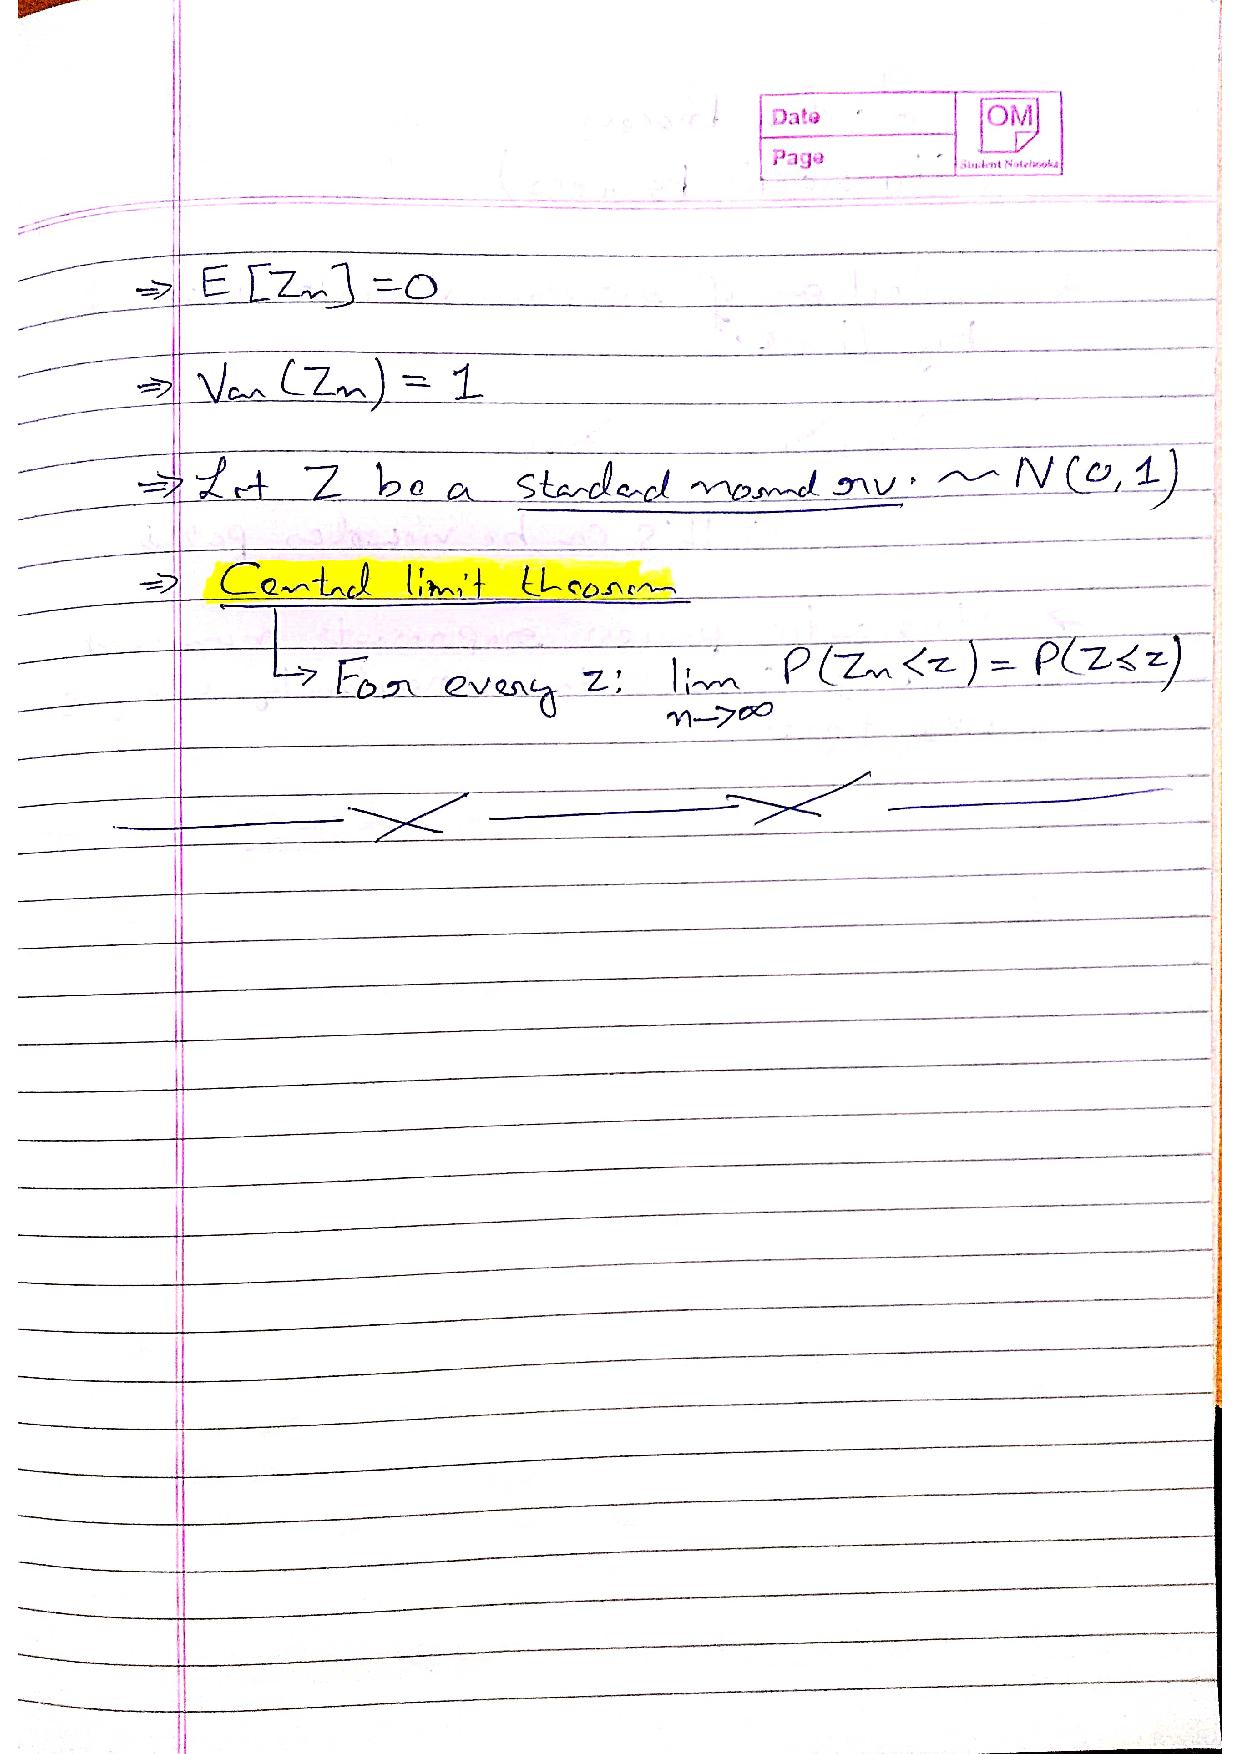 Date
Page
OM
Student Notebooks
⇒ E[Zn] = 0
⇒ Var(Zn) = 1
⇒ Let Z be a standard normal r.v. ~ N(0,1)
⇒ Central limit theorem
↳ For every z: lim n→∞ P(Zn < z) = P(Z ≤ z)